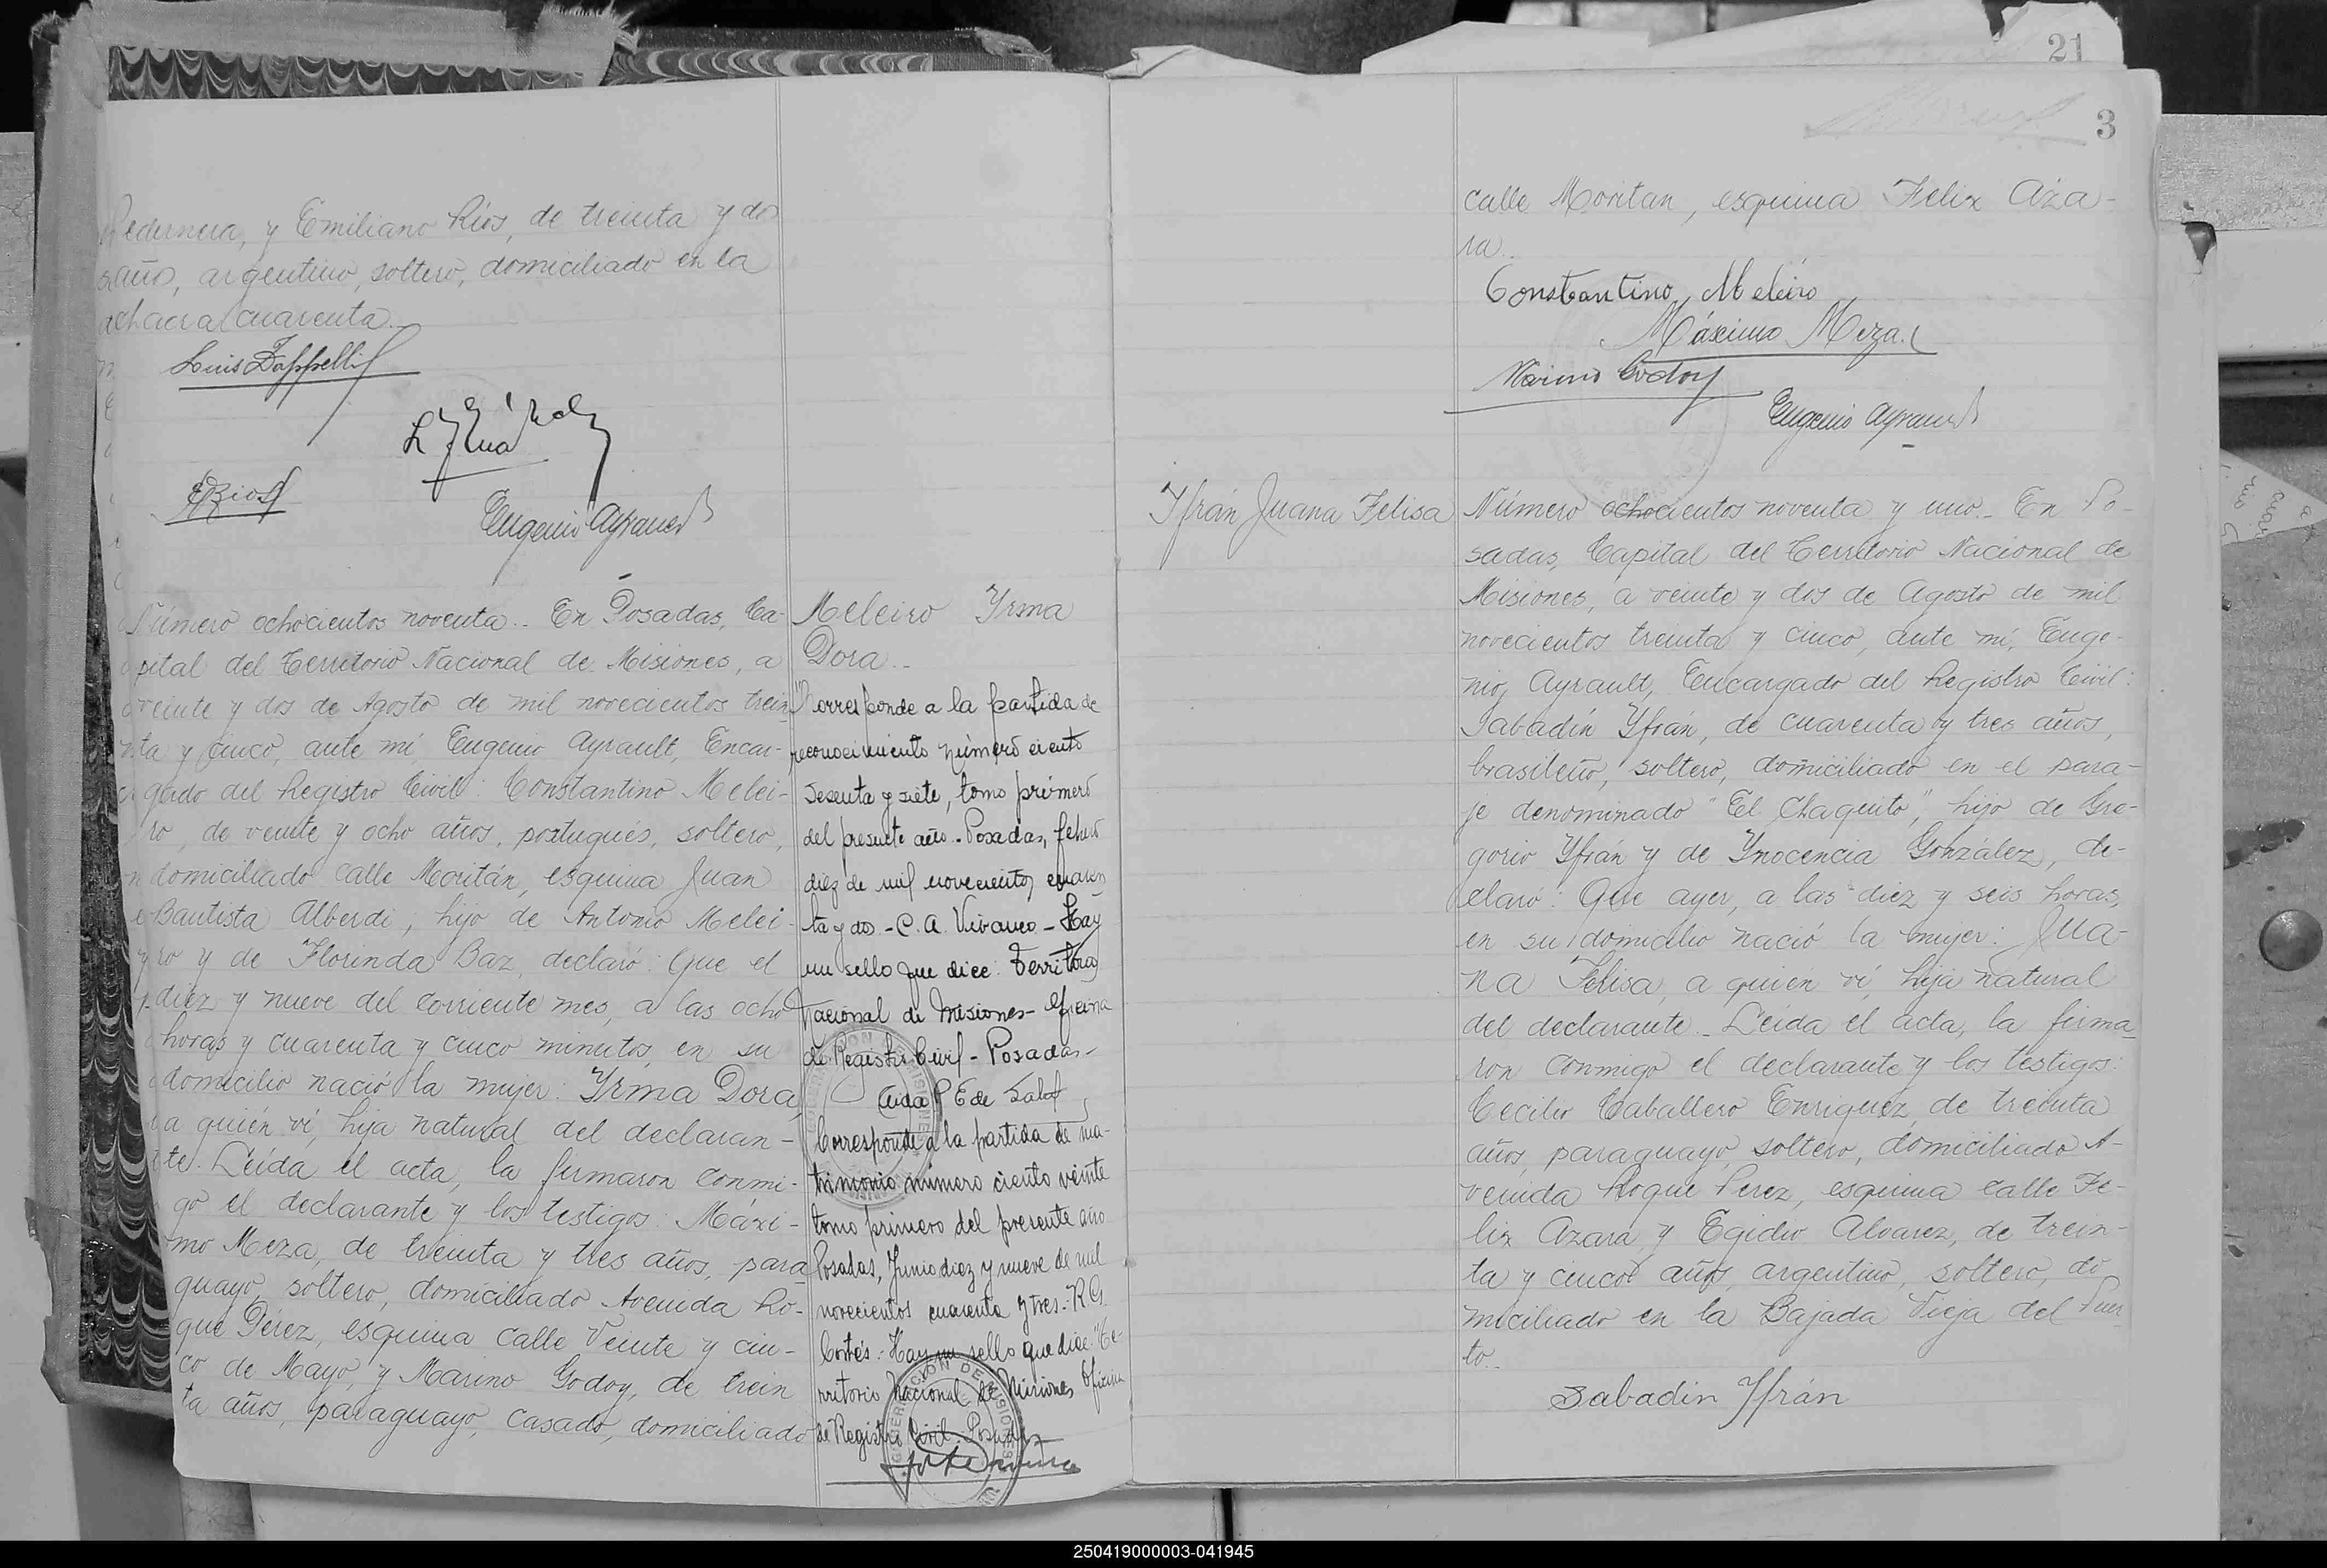 Pedernera, y Emiliano Ríos, de treinta y dos
años, argentino, soltero, domiciliado en la
chacra cuarenta.
Luis Zappelli
ERios
Eugenio Ayrault
Número ochocientos noventa.. En Posadas, Ca-
pital del Territorio Nacional de Misiones, a
veinte y dos de Agosto de mil novecientos trein
ta y cinco, ante mí, Eugenio Ayrault, Encar-
gado del Registro Civil: Constantino Melei-
ro, de veinte y ocho años, portugués, soltero,
domiciliado calle Moritán, esquina Juan
Bautista Alberdi; hijo de Antonio Melei-
ro y de Florinda Baz, declaró: Que el
diez y nueve del corriente mes, a las ocho
horas y cuarenta y cinco minutos, en su
domicilio nació la mujer: Yrma Dora,
a quién ví, hija natural del declaran-
te. Leída el acta, la firmaron conmi-
go el declarante y los testigos: Máxi-
mo Meza, de treinta y tres años, para
guayo, soltero, domiciliado Avenida Ro-
que Pérez, esquina calle Veinte y cin-
co de Mayo, y Marino Godoy, de trein
ta años, paraguayo, casado, domiciliado
Meleiro Yrma
Dora..
"Corresponde a la partida de
reconocimiento número ciento
sesenta y siete, tomo primero
del presente año.- Posadas, febrero
diez de mil novecientos cuaren
ta y dos.- C. A. Vivanco - Hay
un sello que dice: Territorio
Nacional de Misiones - Oficina
de Registro Civil - Posadas.-
Corresponde a la partida de ma-
trimonio número ciento veinte
tomo primero del presente año
Posadas, Junio diez y nueve de mil
novecientos cuarenta y tres.- R.G.
Cortés.- Hay un sello que dice: "Te-
rritorio Nacional de Misiones Oficina
de Registro Civil. Posadas
21
3
calle Moritan, esquina Felix Aza-
ra..
Constantino Meleiro
Máximo Meza
Marino Godoy
Eugenio Ayrault
Yfrán Juana Felisa
Número ochocientos noventa y uno.- En Po-
sadas, Capital del Territorio Nacional de
Misiones, a veinte y dos de Agosto de mil
novecientos treinta y cinco, ante mí, Euge-
nio Ayrault, Encargado del Registro Civil:
Sabadín Yfran, de cuarenta y tres años,
brasileño, soltero, domiciliado en el para-
je denominado "El Chaquito", hijo de Gre-
gorio Yfrán y de Ynocencia González, de-
claró: Que ayer, a las diez y seis horas,
en su domicilio nació la mujer: Jua-
na Felisa, a quién ví, hija natural
del declarante.- Leída el acta, la firma
ron conmigo el declarante y los testigos:
Cecilio Caballero Enriquez, de treinta
años, paraguayo, soltero, domiciliado A-
venida Roque Perez, esquina calle Fe-
lix Azara, y Egidio Alvarez, de trein-
ta y cinco años, argentino, soltero, do
miciliado en la Bajada Vieja del Puer
to..
Sabadin Yfrán
250419000003-041945